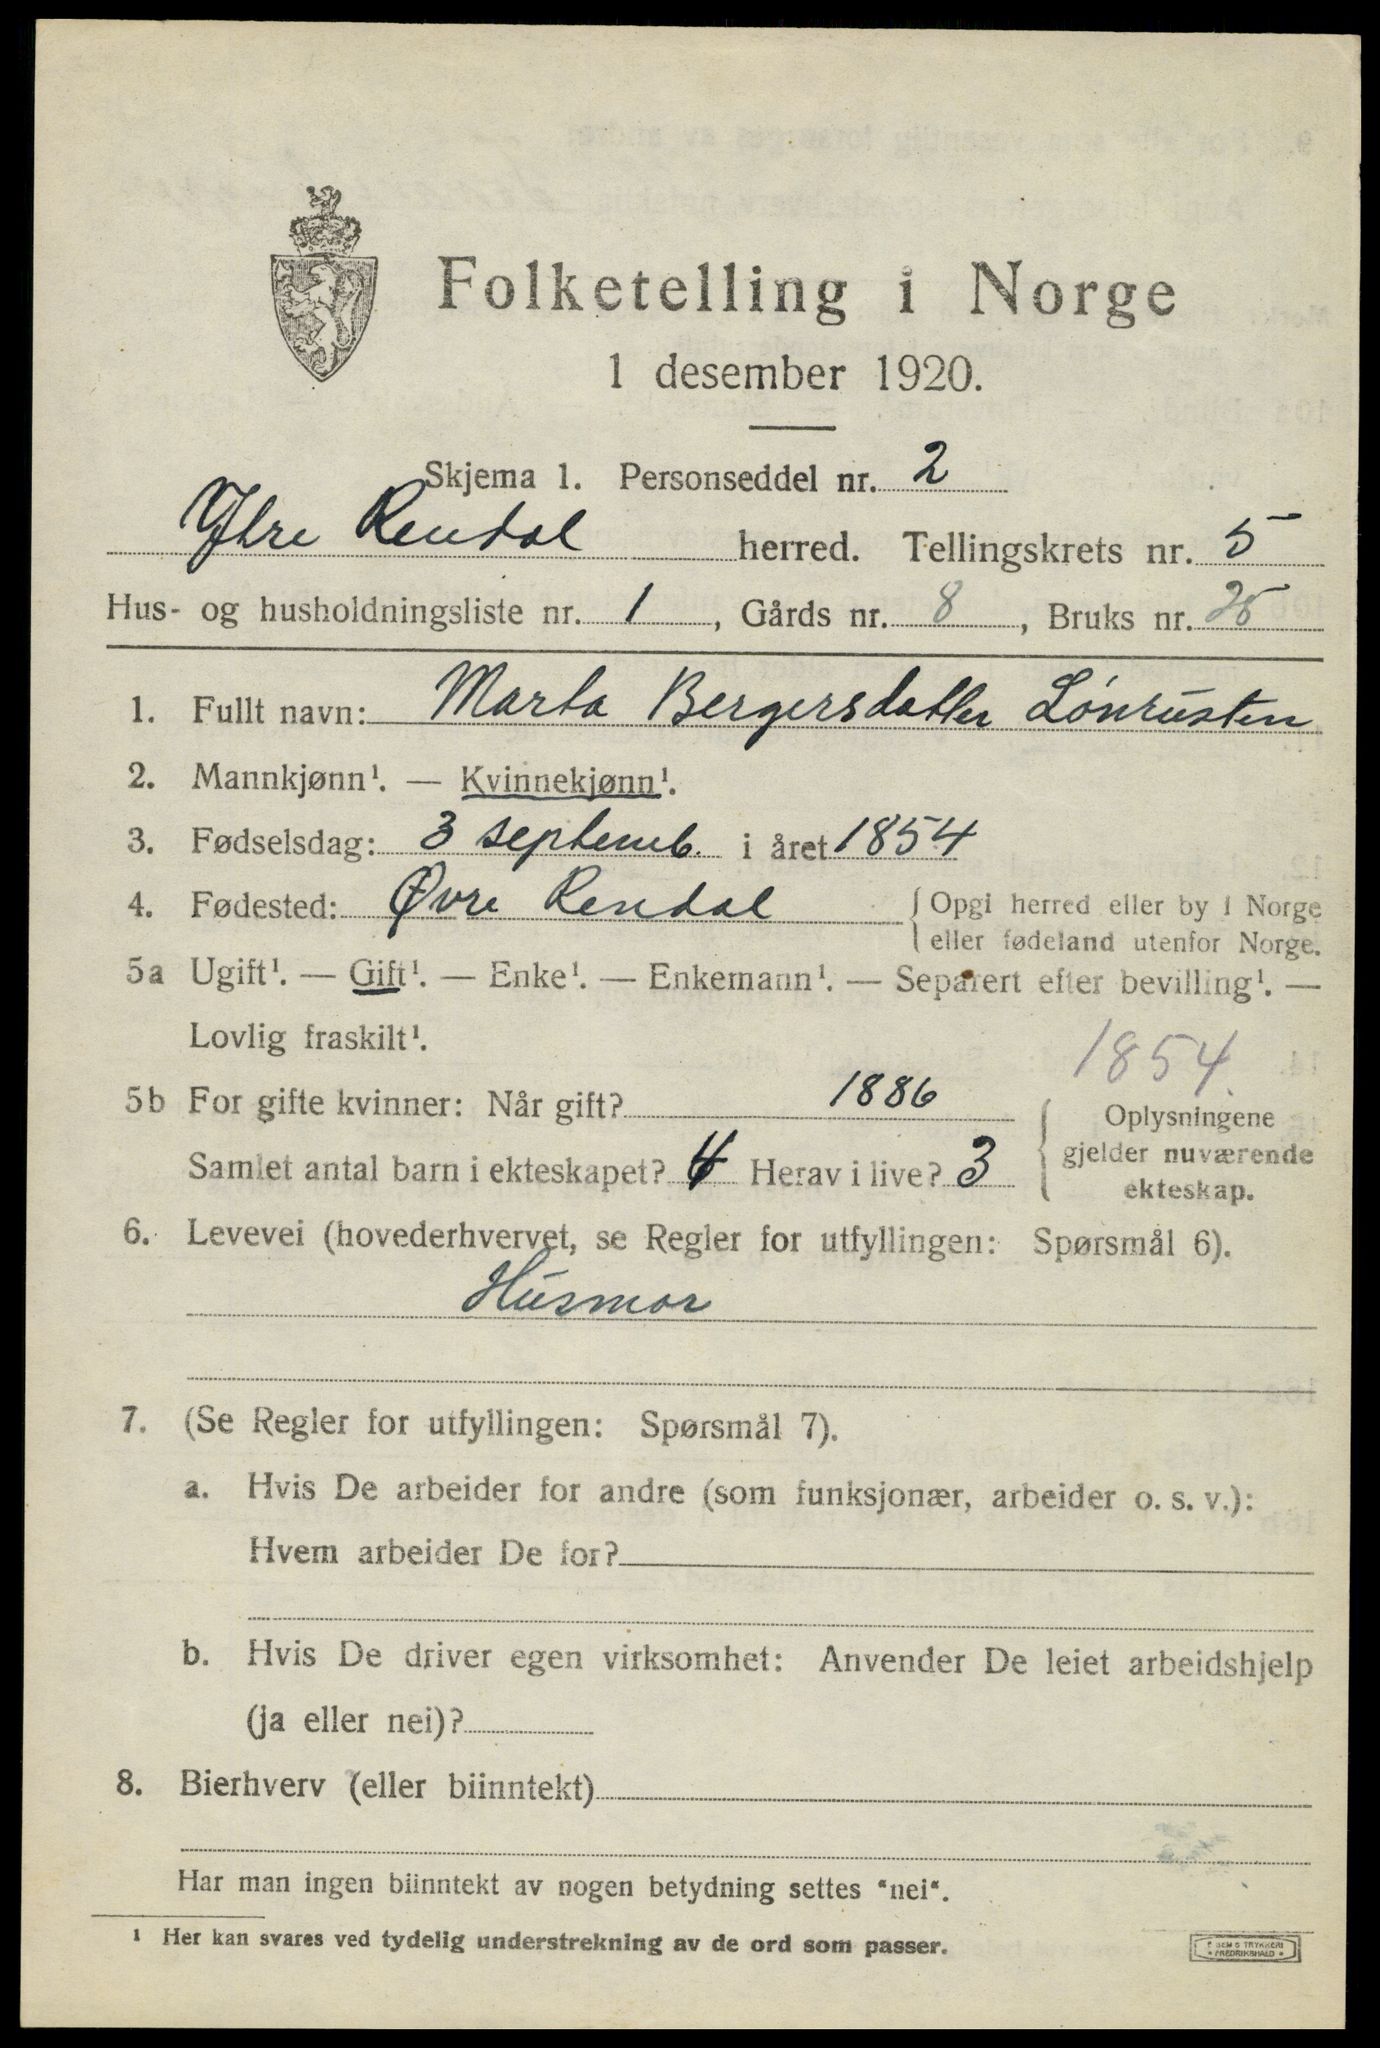 Folketelling i Norge
1 desember 1920.
Skjema 1. Personseddel nr. 2
Ytre Rendal herred. Tellingskrets nr. 5
Hus- og husholdningsliste nr. 1, Gårds nr. 8, Bruks nr. 25
1. Fullt navn: Marta Bergersdatter Lønrusten
2. Mannkjønn¹. — Kvinnekjønn¹.
3. Fødselsdag: 3 septemb. i året 1854
4. Fødested: Øvre Rendal { Opgi herred eller by i Norge
eller fødeland utenfor Norge.
5a Ugift¹. — Gift¹. — Enke¹. — Enkemann¹. — Separert efter bevilling¹. —
Lovlig fraskilt¹.
1854.
5b For gifte kvinner: Når gift? 1886
Samlet antal barn i ekteskapet? 4 Herav i live? 3
Oplysningene
gjelder nuværende
ekteskap.
6. Levevei (hovederhvervet, se Regler for utfyllingen: Spørsmål 6).
Husmor
7. (Se Regler for utfyllingen: Spørsmål 7).
a. Hvis De arbeider for andre (som funksjonær, arbeider o. s. v.):
Hvem arbeider De for?
b. Hvis De driver egen virksomhet: Anvender De leiet arbeidshjelp
(ja eller nei)?
8. Bierhverv (eller biinntekt)
Har man ingen biinntekt av nogen betydning settes "nei".
¹ Her kan svares ved tydelig understrekning av de ord som passer.
TRYKKERI
FREDRIKSHALD